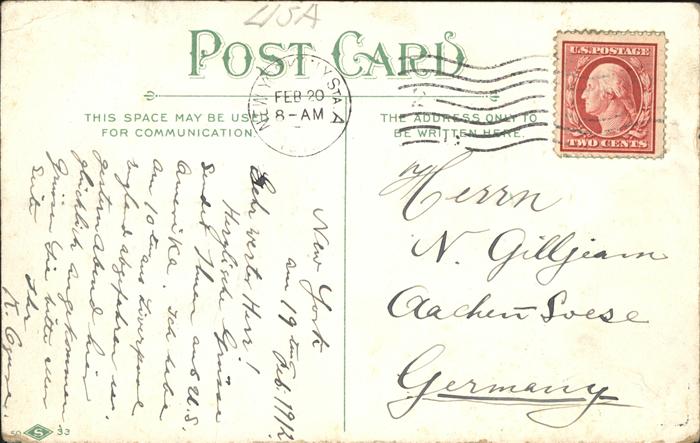 USA
POST CARD
NEW YORK, N.Y. STA. A
FEB 20
8-AM
U.S. POSTAGE
TWO CENTS
THIS SPACE MAY BE USED
FOR COMMUNICATION.
THE ADDRESS ONLY TO
BE WRITTEN HERE.
New York
am 19ten Feb. 1912
Sehr werter Herr!
Herzliche Grüsse
sendet Ihnen aus U.S.
Amerika. Ich habe
am 10ten aus Liverpool
England abgefahren u.
gestern Abend hier
glücklich angekommen
Grüssen Sie bitte
Ihr
K.
Herrn
N. Gilljeam
Aachen Soese
Germany
S 33